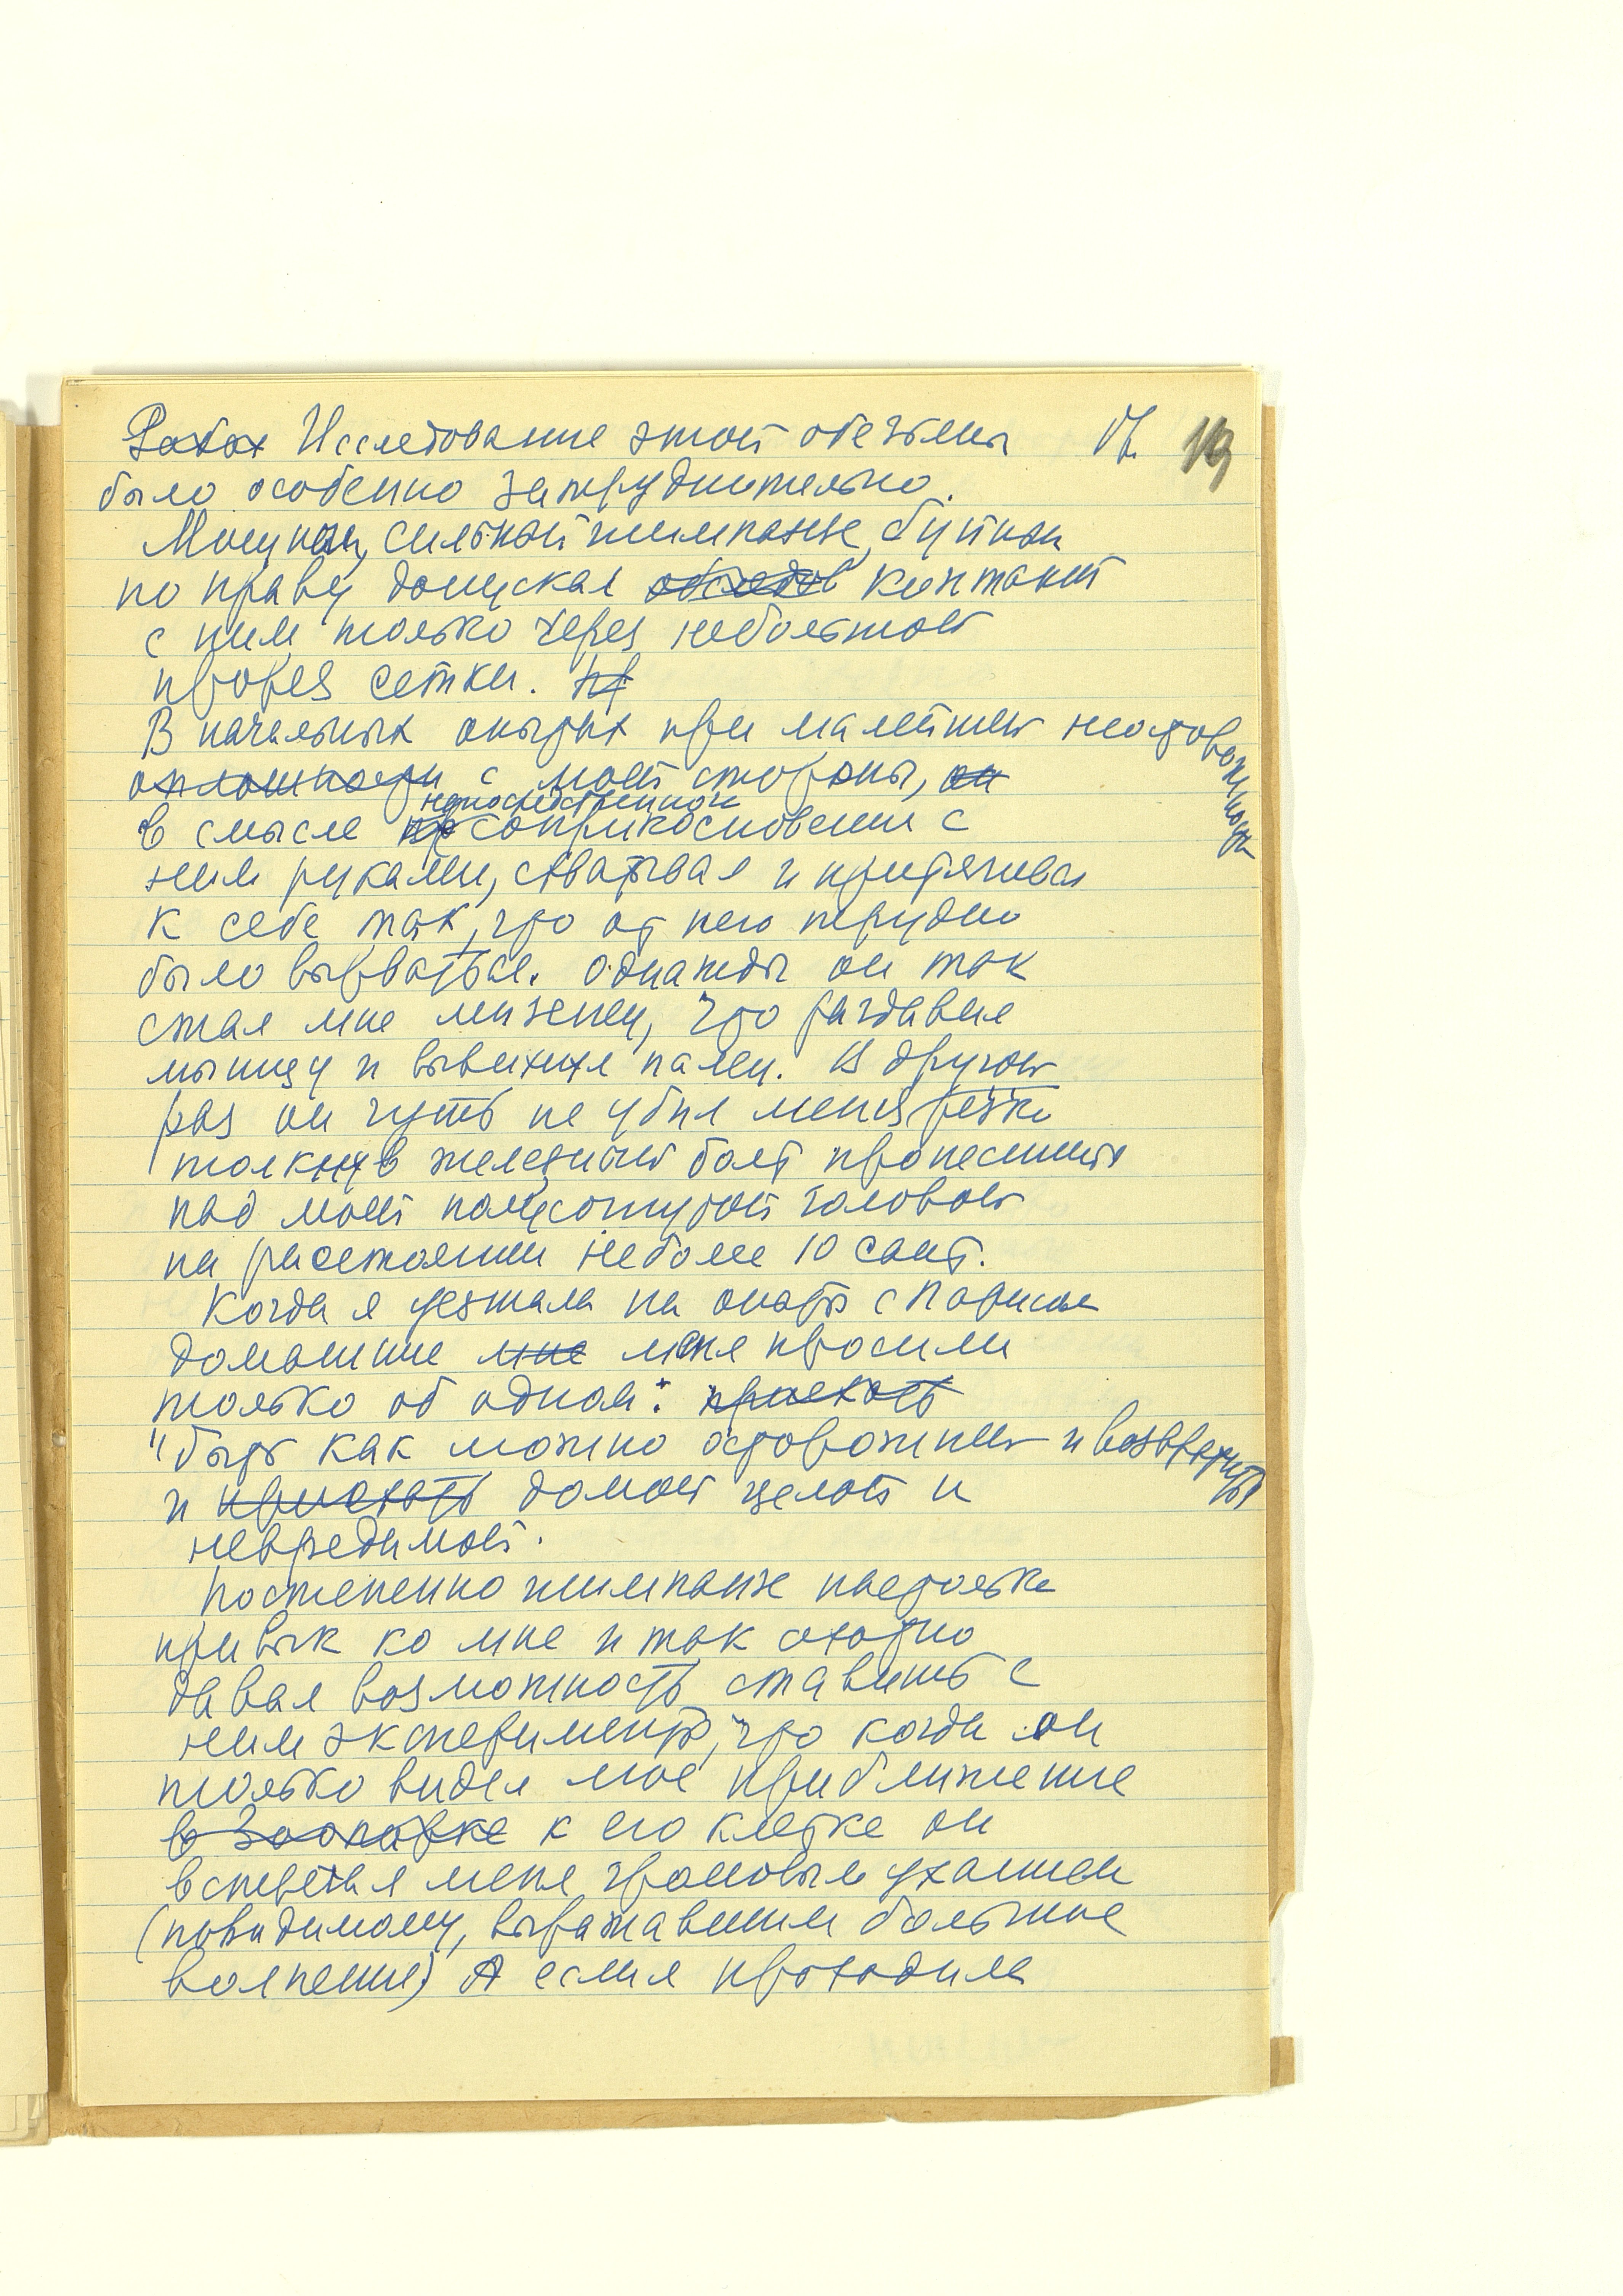 Работ Исследование этой обезьяны 19
было особенно затруднительно.
Могучий, сильный шимпанзе, буйный
по нраву допускал обследов контакт
с ним только через небольшой
прорез сетки. Пр
В начальных опытах при малейшей неосторожности
оплошности с моей стороны, он
непосредственного
в смысле пр соприкосновения с
ним руками, схватывал и притягивал
к себе так, что от него трудно
было вырваться. Однажды он так
сжал мне мизинец, что раздавил
мышцу и вывихнул палец. В другой
раз он чуть не убил меня резко
толкнув железный болт пронесшийся
над моей полусогнутой головой
на расстоянии не более 10 сант.
Когда я уезжала на опыты с Парисом
домашние мне меня просили
только об одном: приехать
"быть как можно осторожней и возвратиться
и приехать домой целой и
невредимой.
Постепенно шимпанзе настолько
привык ко мне и так охотно
давал возможность ставить с
ним эксперименты, что когда он
только видел мое приближение
в Зоопарке к его клетке он
встречал меня громовым уханием
(повидимому, выражавшим большое
волнение) А если я проходила